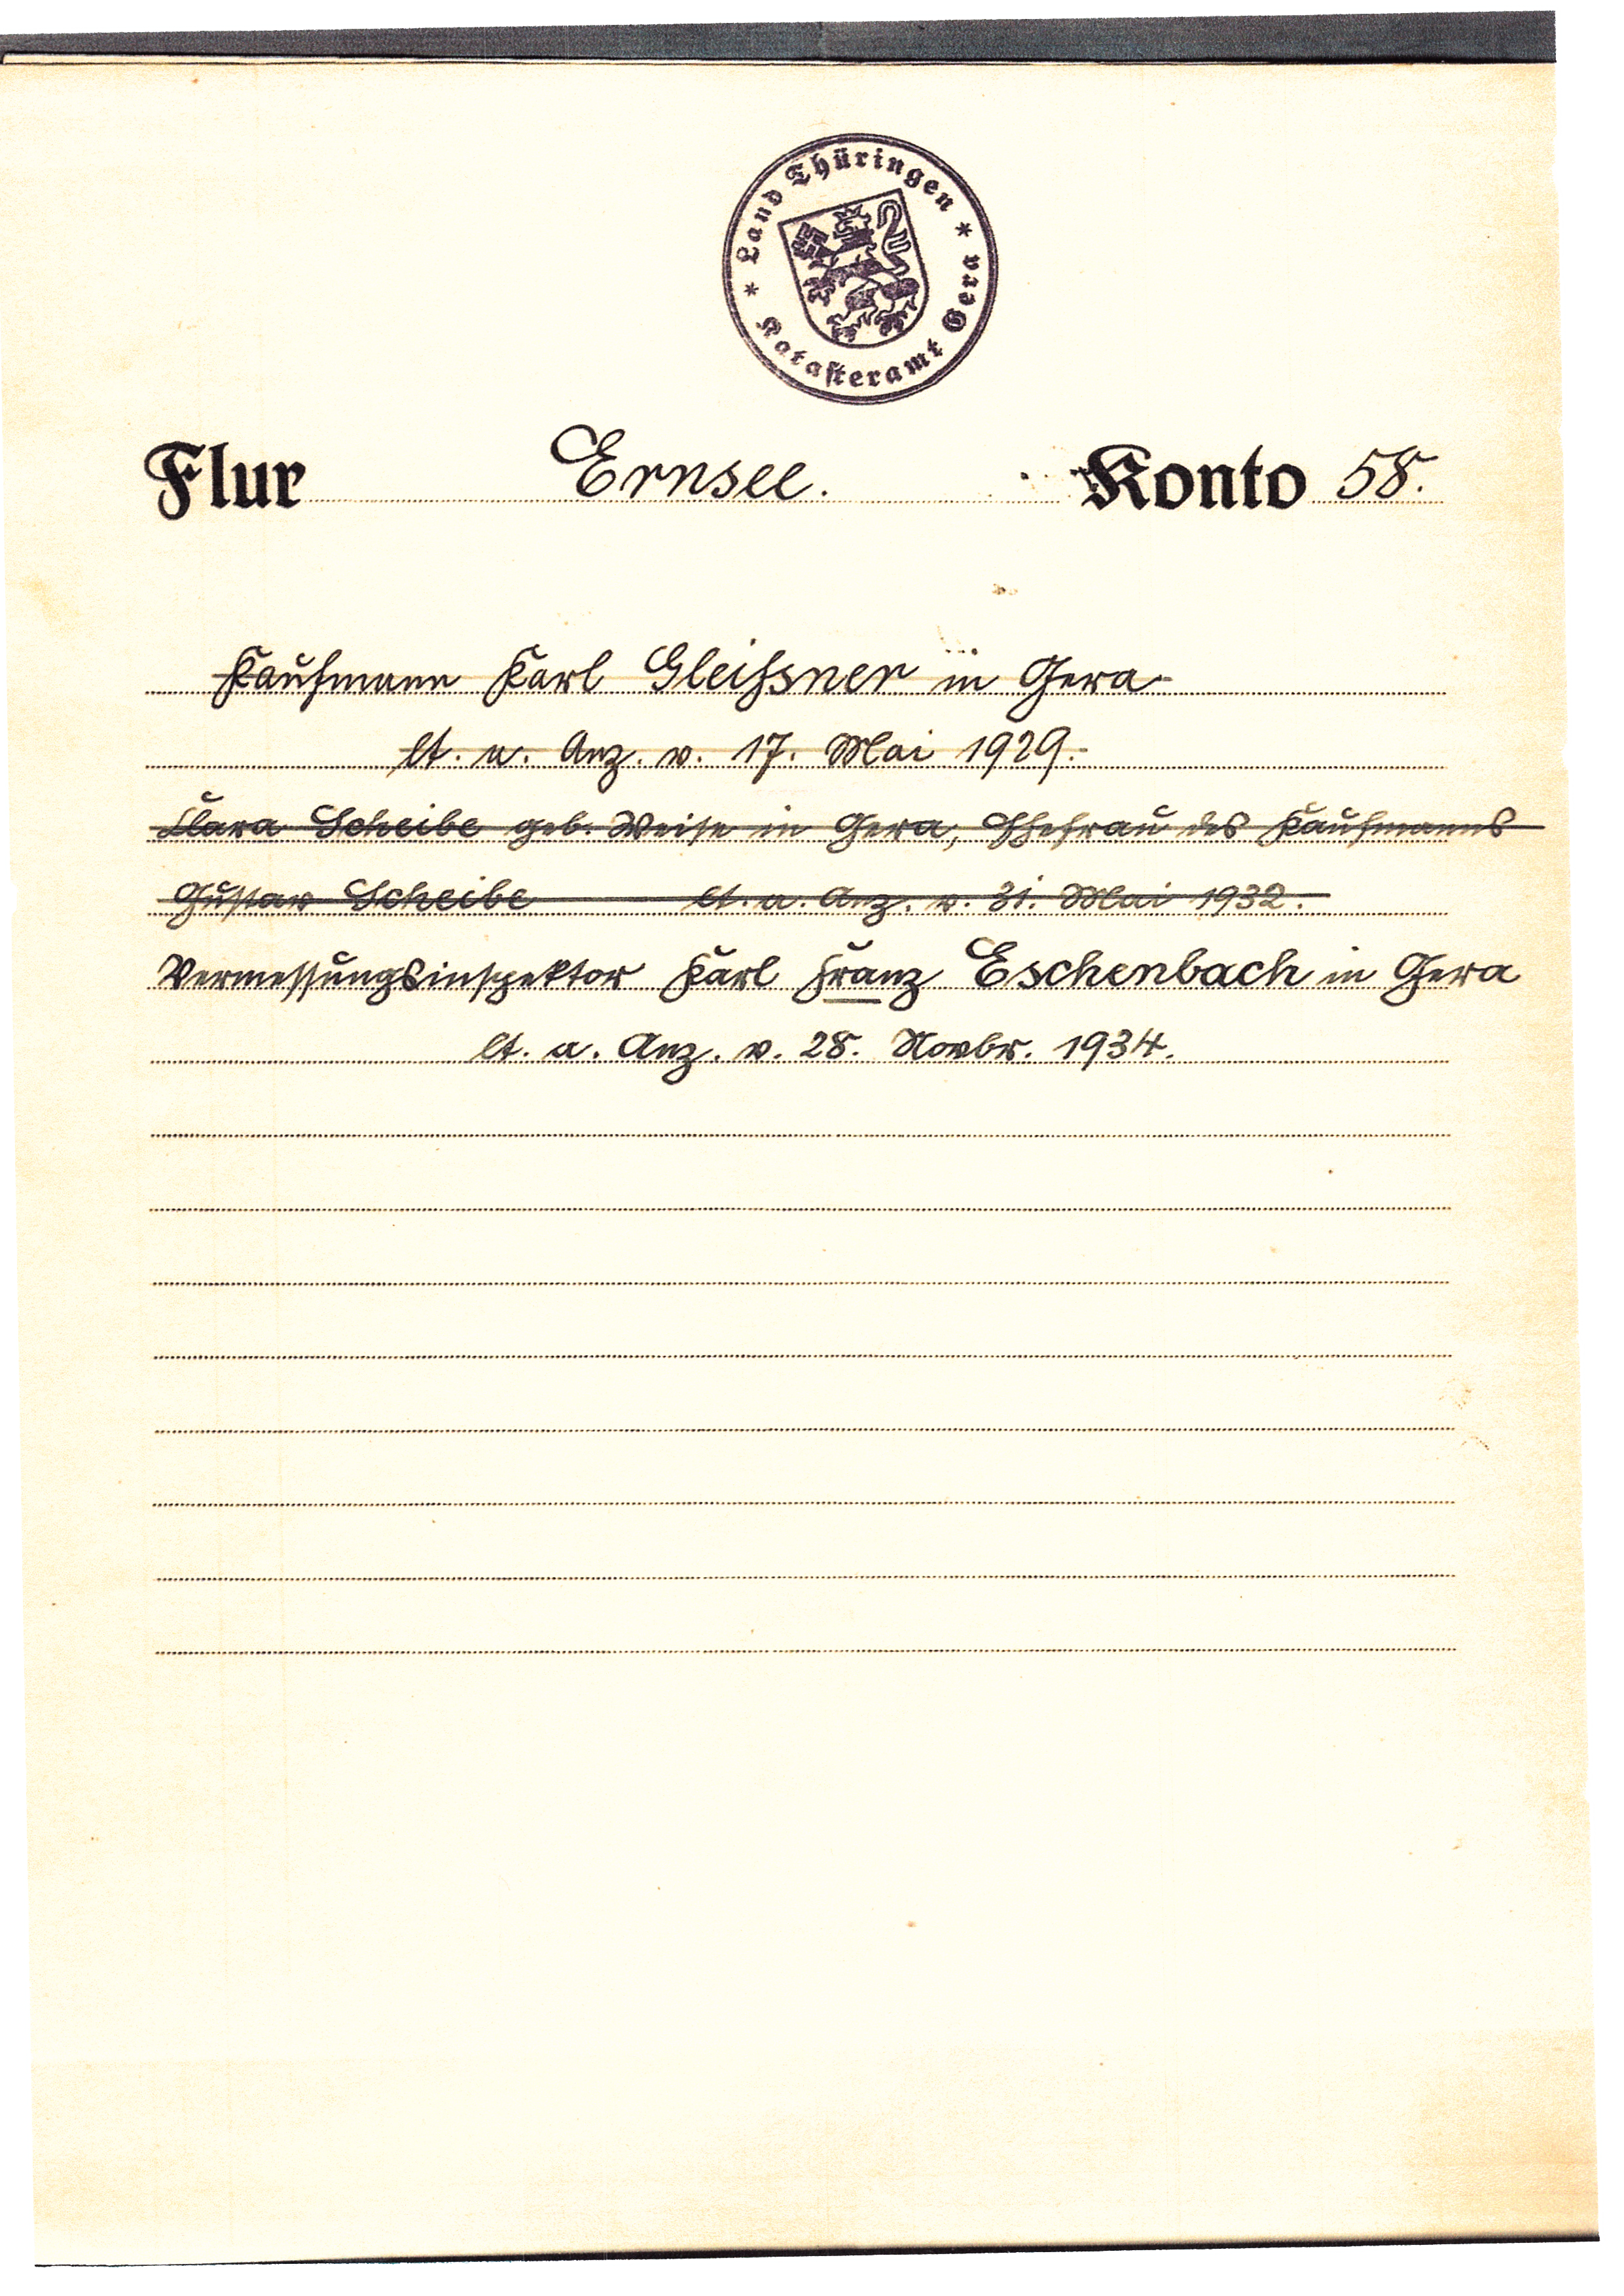 * Land Thüringen *
Katasteramt Gera
Flur Ernsee. Konto 58.
Kaufmann Karl Gleißner in Gera
lt. a. Anz. v. 17. Mai 1929.
Clara Scheibe geb. Weise in Gera, Ehefrau des Kaufmanns
Gustav Scheibe lt. a. Anz. v. 31. Mai 1932.
Vermessungsinspektor Karl Franz Eschenbach in Gera
lt. a. Anz. v. 28. Novbr. 1934.